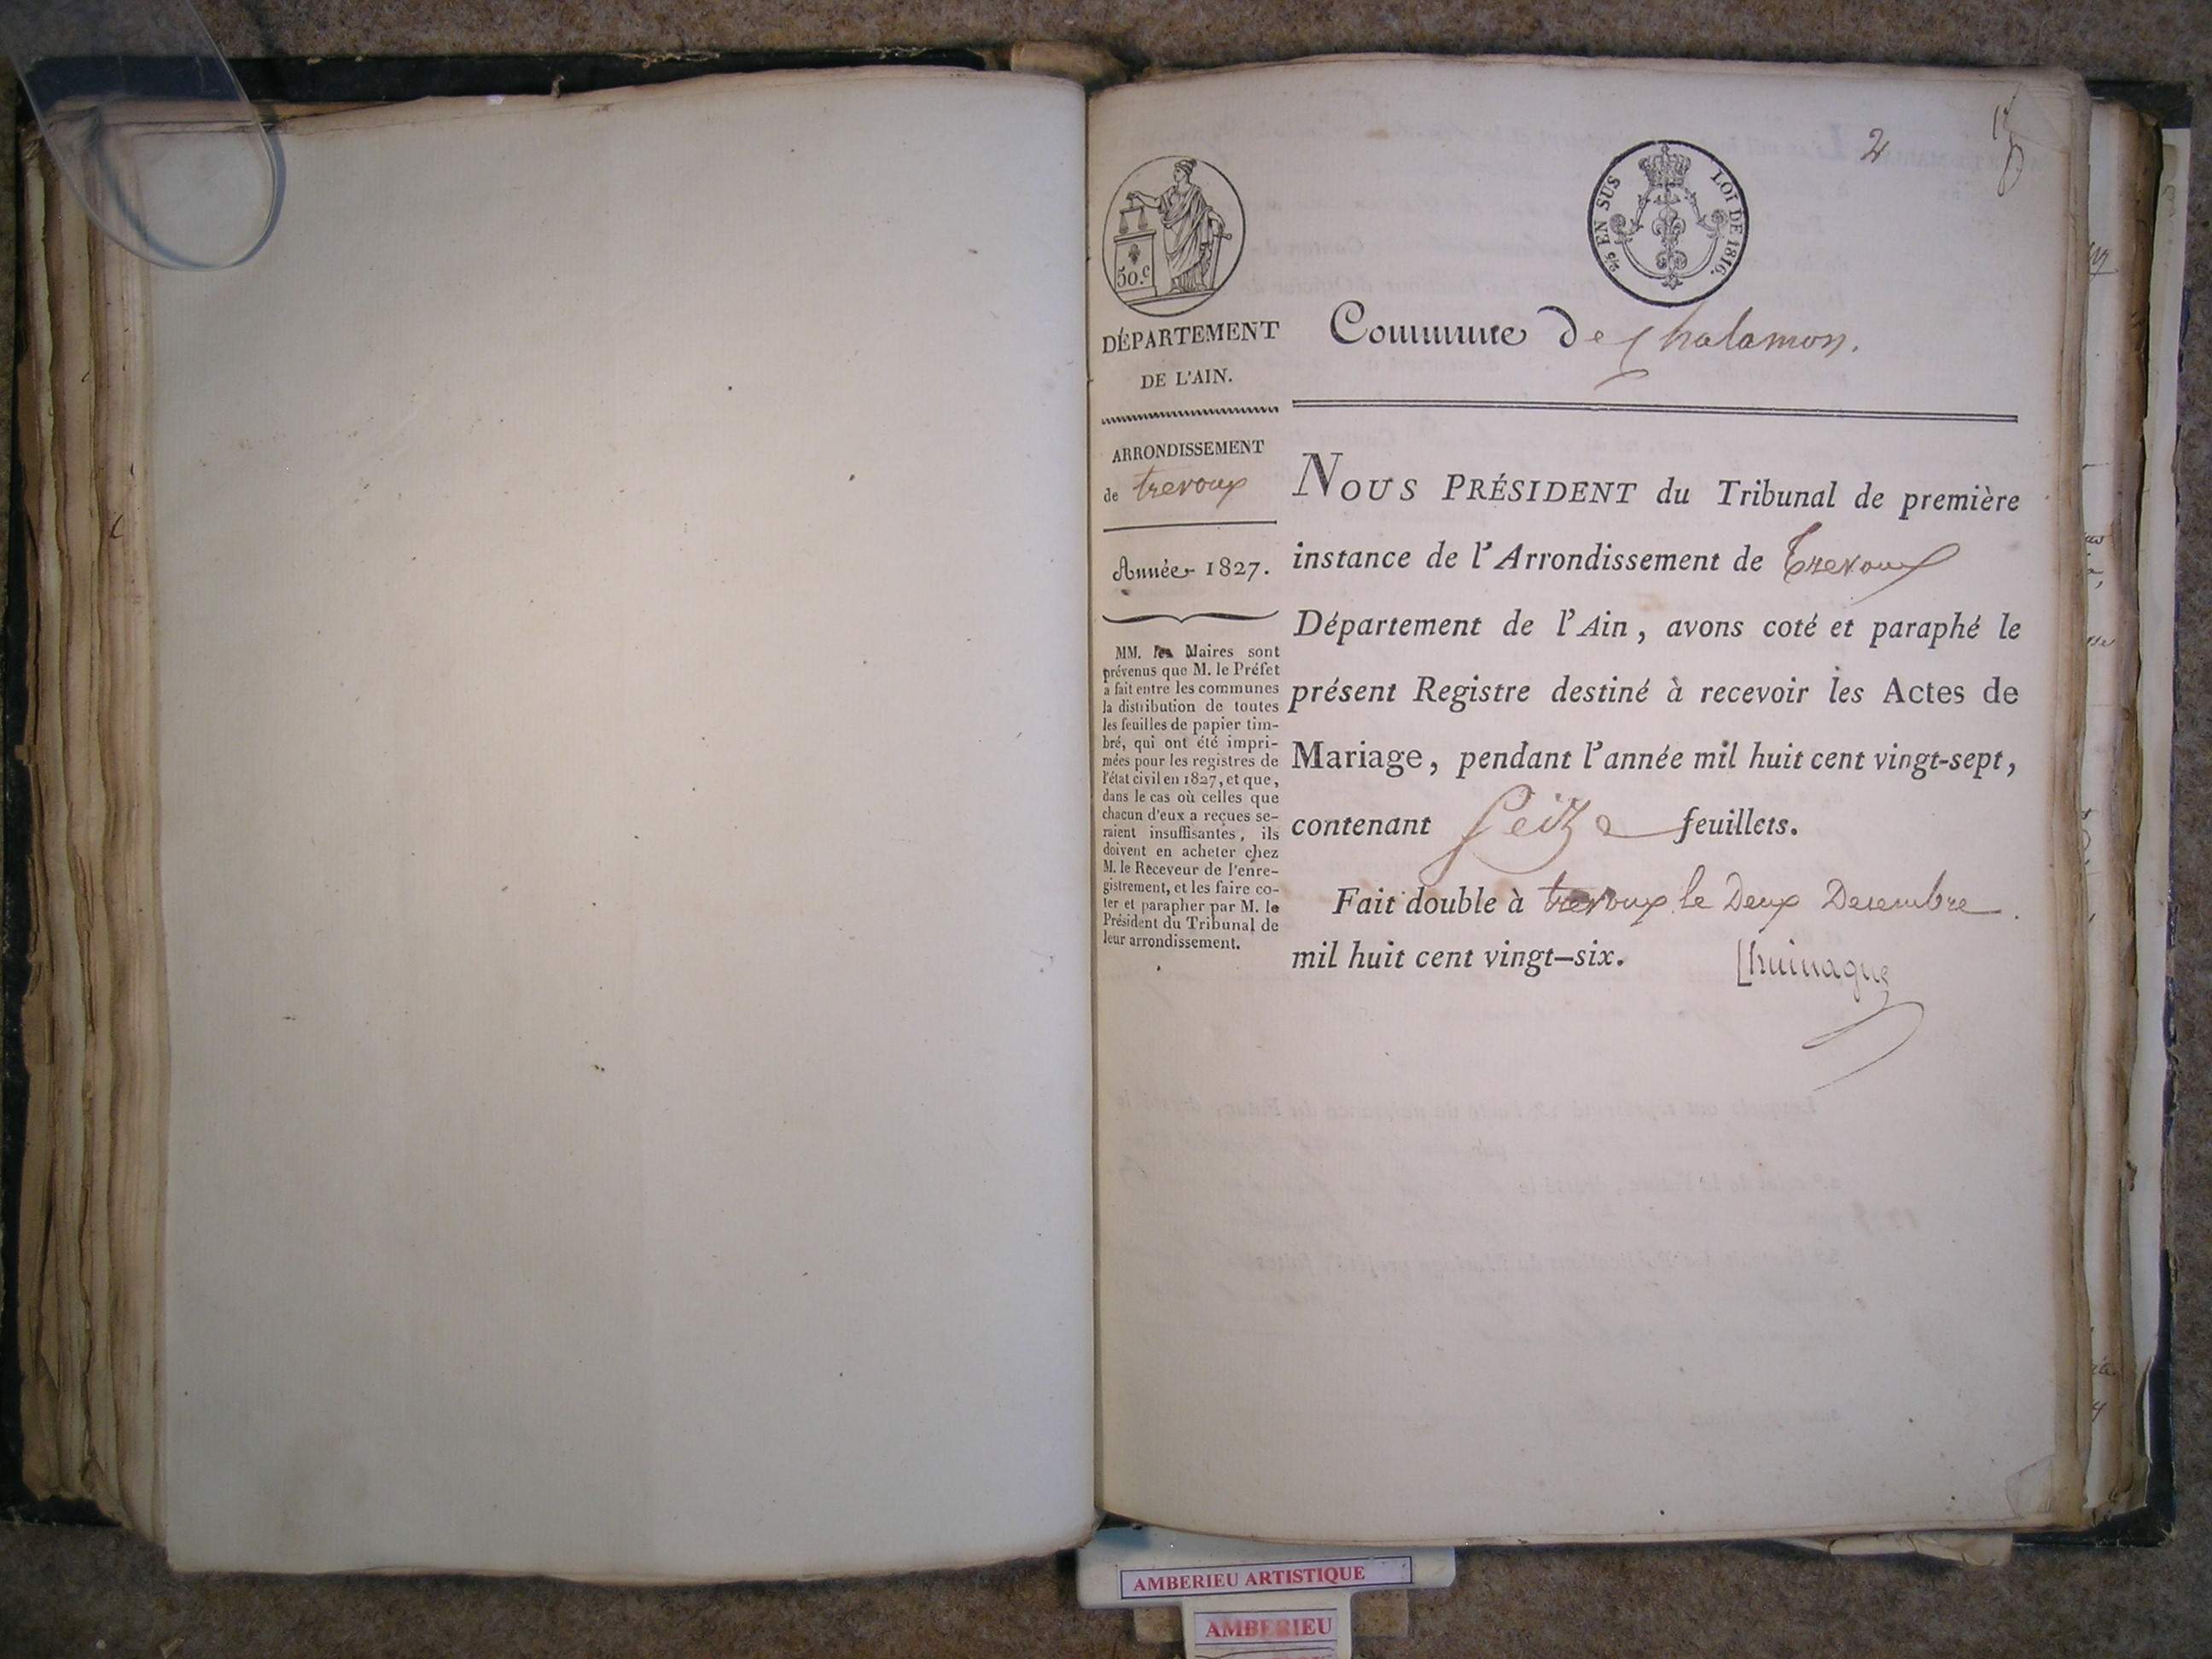 2
50.c
2/5 EN SUS LOI DE 1816.
DÉPARTEMENT
DE L'AIN.
ARRONDISSEMENT
de trevoux
Année 1827.
MM. les Maires sont
prévenus que M. le Préfet
a fait entre les communes
la distribution de toutes
les feuilles de papier tim-
bré, qui ont été impri-
mées pour les registres de
l'état civil en 1827, et que,
dans le cas où celles que
chacun d'eux a reçues se-
raient insuffisantes, ils
doivent en acheter chez
M. le Receveur de l'enre-
gistrement, et les faire co-
ter et parapher par M. le
Président du Tribunal de
leur arrondissement.
Commune de Chalamon.
NOUS PRÉSIDENT du Tribunal de première
instance de l'Arrondissement de Trevoux
Département de l'Ain, avons coté et paraphé le
présent Registre destiné à recevoir les Actes de
Mariage, pendant l'année mil huit cent vingt-sept,
contenant Seize feuillets.
Fait double à trevoux le Deux Desembre
mil huit cent vingt-six.
AMBERIEU ARTISTIQUE
AMBERIEU